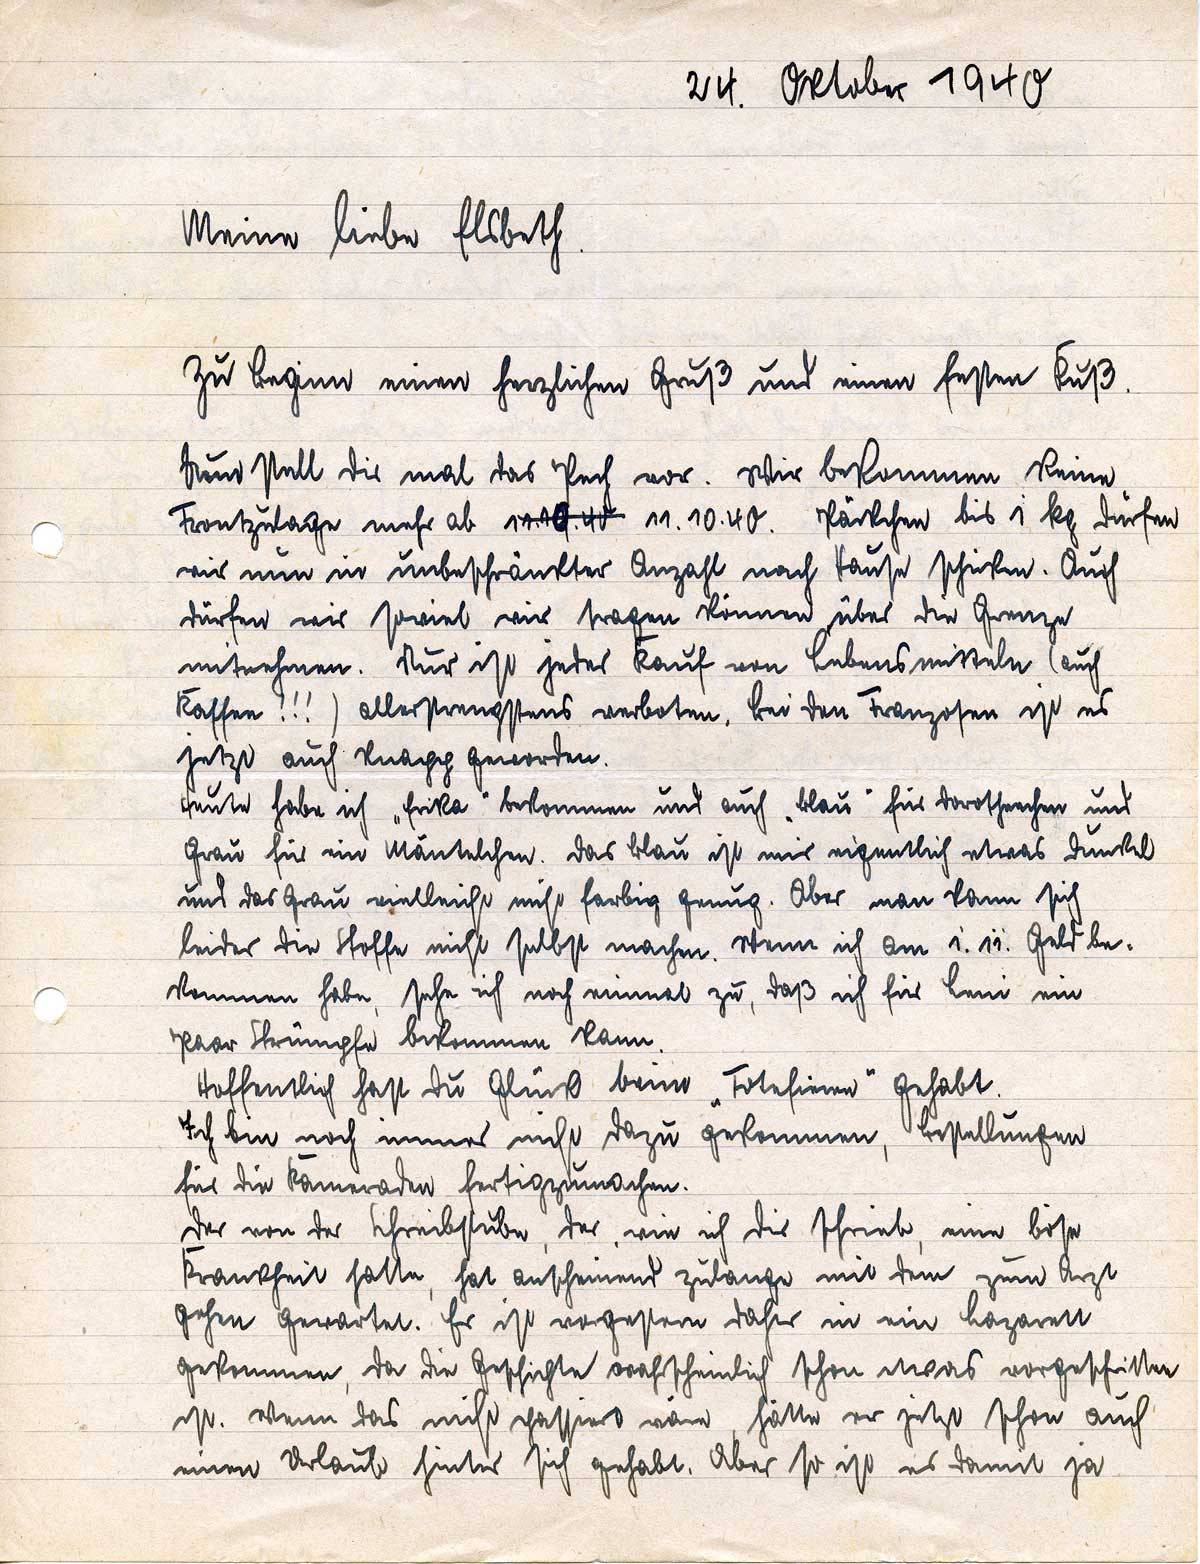 24. Oktober 1940
Meine liebe Elsbeth.
Zu Beginn einen herzlichen Gruß und einen festen Kuß.
Nun stell dir mal das Pech vor. Wir bekommen keine
Frontzulage mehr ab 11.10.40 11.10.40. Päckchen bis 1 kg dürfen
wir nun in unbeschränkter Anzahl nach Hause schicken. Auch
dürfen wir soviel wir tragen können über die Grenze
mitnehmen. Nur ist jeder Kauf von Lebensmitteln (auch
Kaffee!!!) allerstrengstens verboten. Bei den Franzosen ist es
jetzt auch knapp geworden.
Heute habe ich „Erika" bekommen und auch „blau" für Dorotheechen und
Grau für ein Mäntelchen. Das Blau ist mir eigentlich etwas dunkel
und das Grau vielleicht nicht farbig genug. Aber man kann sich
leider die Stoffe nicht selbst machen. Wenn ich am 1. 11. Geld be-
kommen habe, sehe ich noch einmal zu, daß ich für Leni ein
paar Strümpfe bekommen kann.
Hoffentlich hast du Glück beim „Fotefieren" gehabt.
Ich bin noch immer nicht dazu gekommen, Bestellungen
für die Kameraden fertigzumachen.
Der von der Schreibstube, der, wie ich dir schrieb, eine böse
Krankheit hatte, hat anscheinend zulange mit dem zum Arzt
gehen gewartet. Er ist vorgestern daher in ein Lazarett
gekommen, da die Geschichte wahrscheinlich schon etwas vorgeschritten
ist. Wenn das nicht passiert wäre, hätte er jetzt schon auch
einen Urlaub hinter sich gehabt. Aber so ist es damit ja